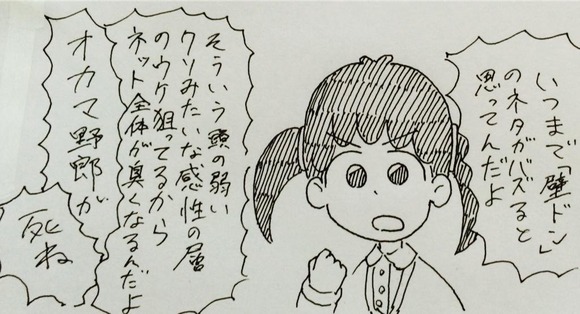 いつまで「壁ドン」
のネタがバズると
思ってんだよ
そういう頭の弱い
クソみたいな感性の層
のウケ狙ってるから
ネット全体が臭くなるんだよ
オカマ野郎が
死ね